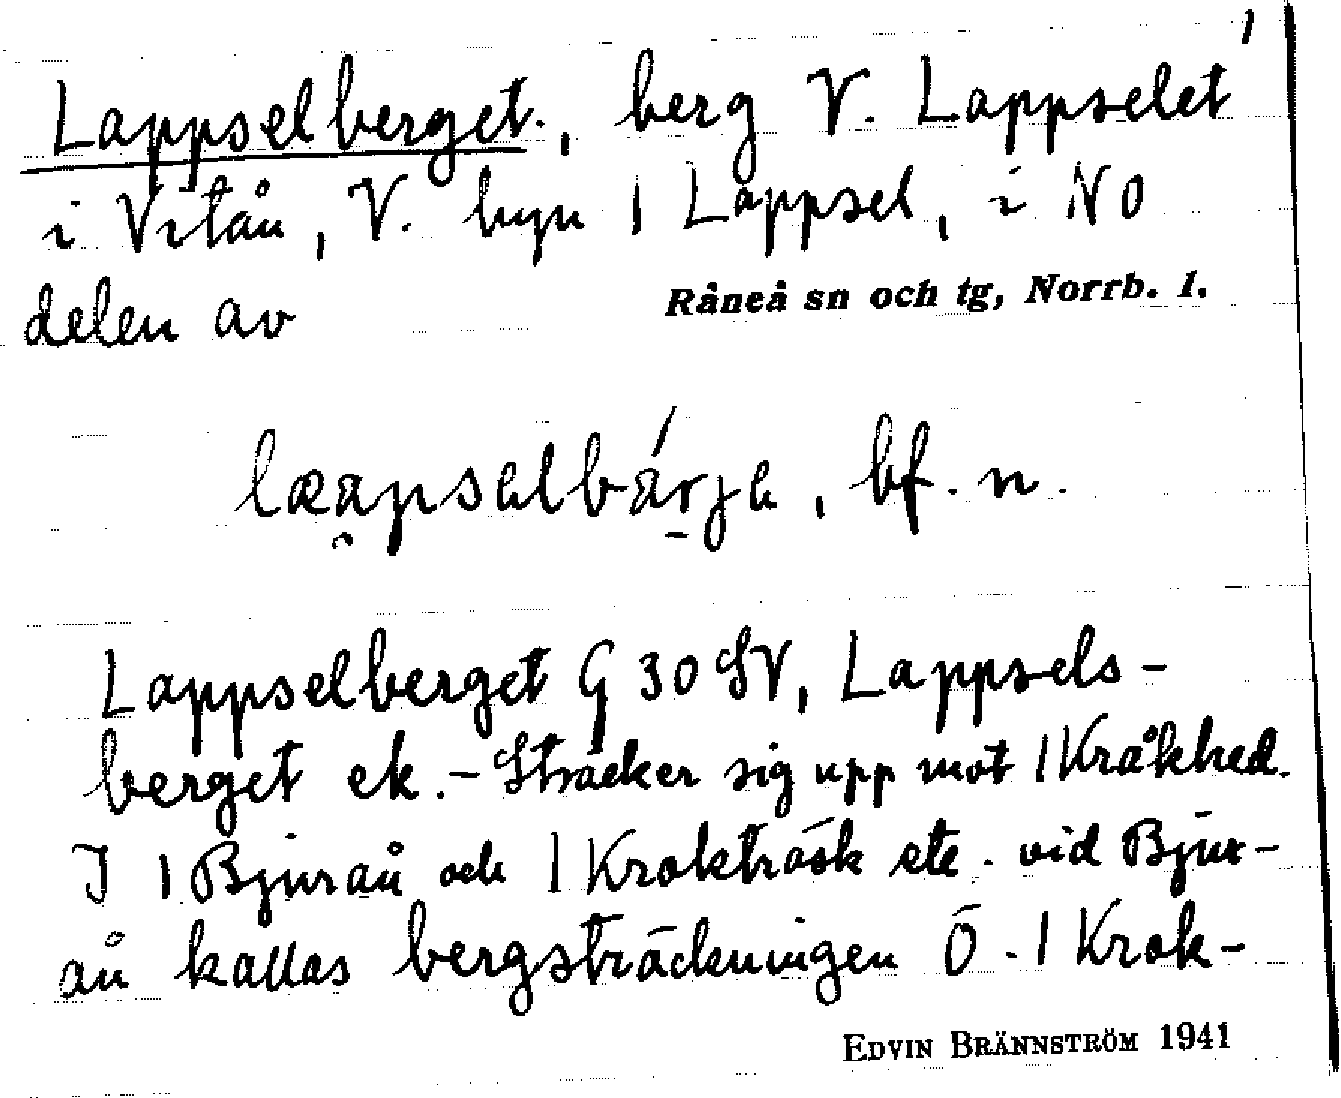 1
Lappselberget, berg V. Lappselet
i Vitån, V. byn | Lappsel, i NO
delen av Råneå sn och tg, Norrb. l.
bf. n.
Lappselberget G 30 SV, Lappsels-
berget ek. - Sträcker sig upp mot | Kråkhed.
I | Bjuraå och | Kroketräsk ete. vid Bjur-
ån kallas bergsträckningen Ö. | Krok-
EDVIN BRÄNNSTRÖM 1941